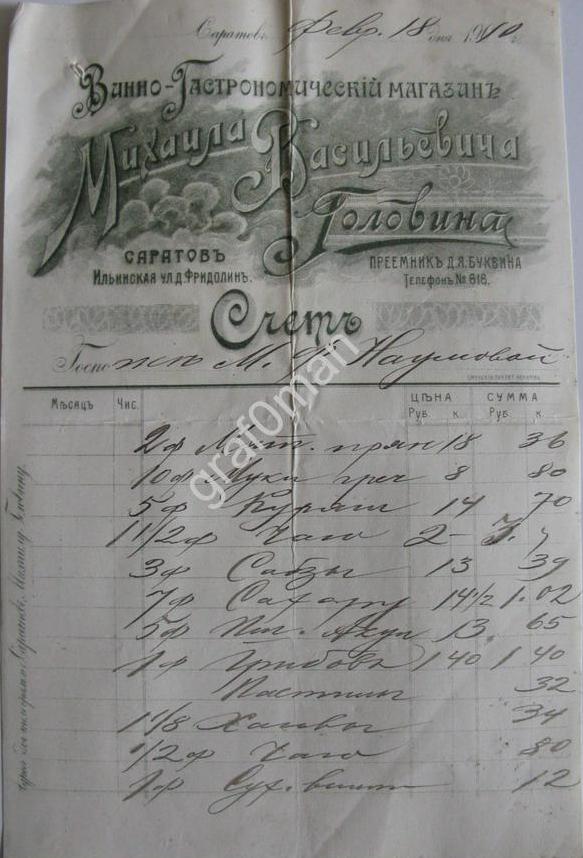 Саратовъ Февр. 18 дня 1910 г.
Винно-Гастрономическій магазинъ
Михаила Васильевича
Головина
Саратовъ
Ильинская ул. д. Фридолинъ.
Преемникъ Д.Я. Буквина
Телефонъ № 818.
Счетъ
Госпожѣ М. Ф. Наумовой
Мѣсяцъ Чис. Цѣна Сумма
Руб. к. Руб. к.
2 ф прян 18 36
10 ф Муки греч 8 80
5 ф 14 70
1 1/2 ф Чаю 2 - 3. "
3 ф Сабзы 13 39
7 ф Сахару 14 1/2 1.02
5 ф 13. 65
1 ф Грибовъ 1 40 1 40
Пастилы 32
1 1/8 Халвы 34
1/2 ф Чаю 80
1 ф Сух. 12
graf0man